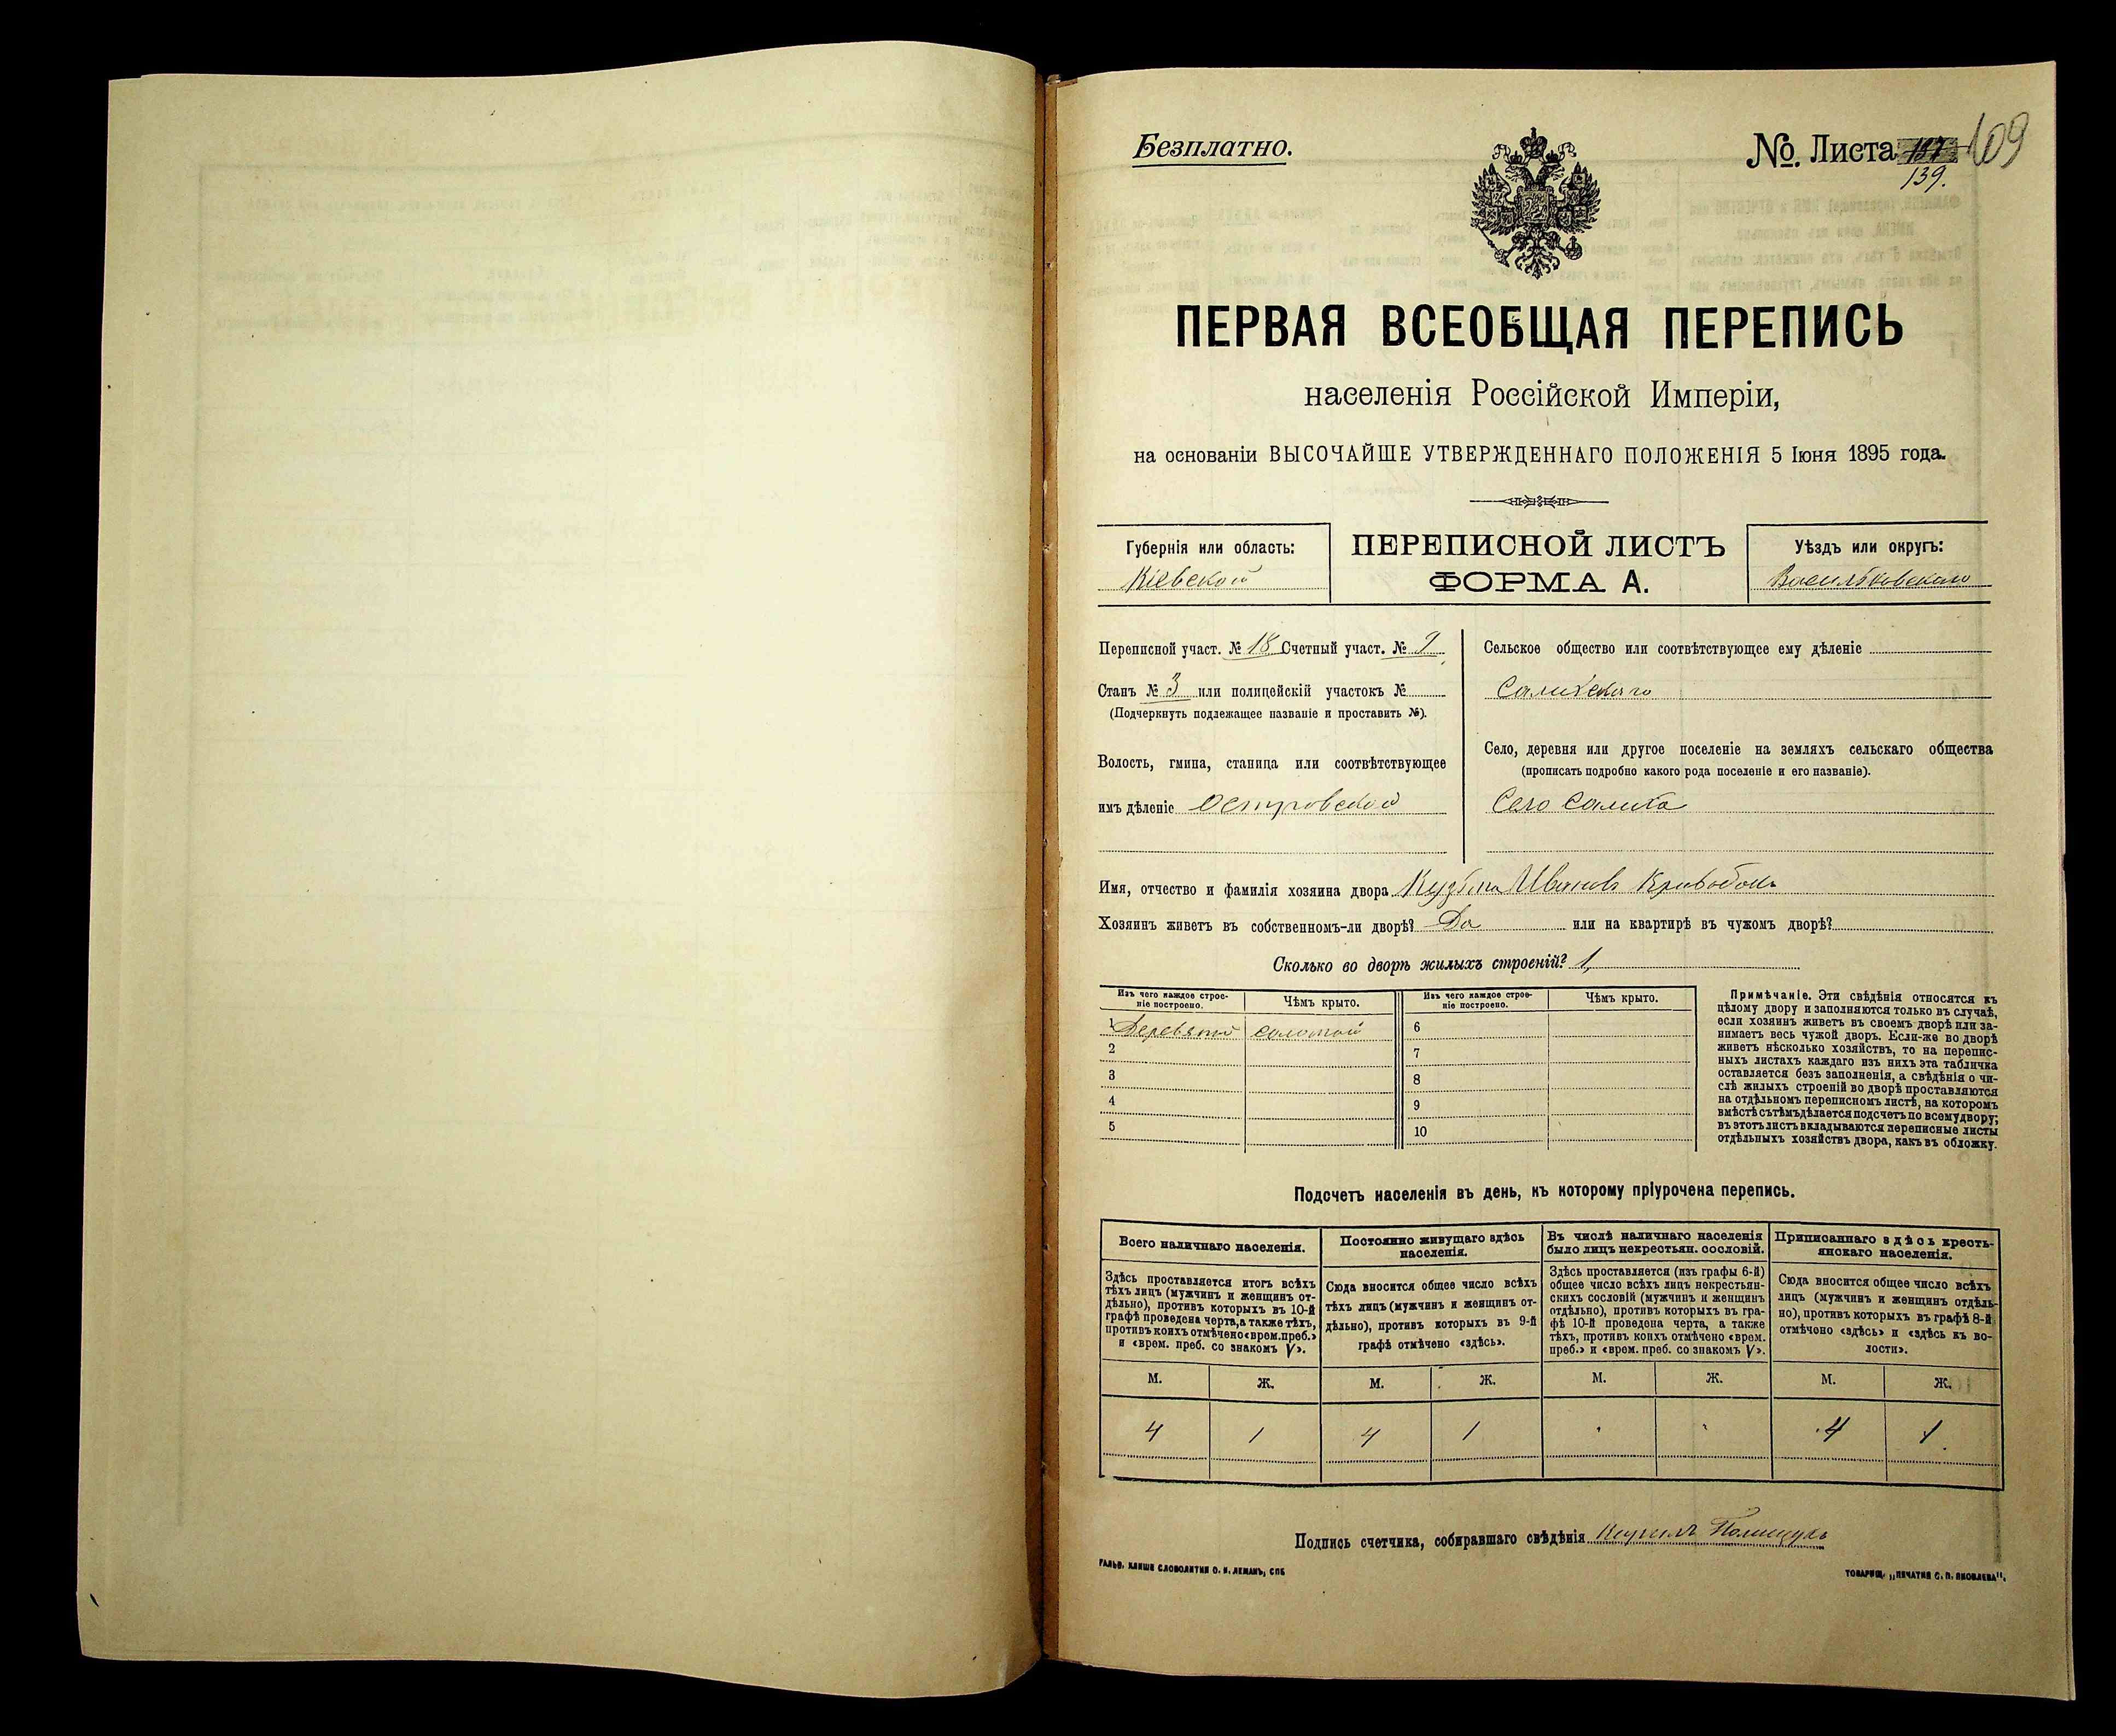 Безплатно.
№. Листа 137 109
139.
ПЕРВАЯ ВСЕОБЩАЯ ПЕРЕПИСЬ
населенія Россійской Имперіи,
на основаніи ВЫСОЧАЙШЕ УТВЕРЖДЕННАГО ПОЛОЖЕНІЯ 5 Іюня 1895 года.
Губернія или область:
Кіевской
ПЕРЕПИСНОЙ ЛИСТЪ
ФОРМА А.
Уѣздъ или округъ:
Васильковскаго
Переписной участ. № 18 Счетный участ. № 9
Станъ № 3 или полицейскій участокъ №
(Подчеркнуть подлежащее названіе и проставить №).
Волость, гмина, станица или соотвѣтствующее
имъ дѣленіе Островской
Сельское общество или соотвѣтствующее ему дѣленіе
Салихскаго
Село, деревня или другое поселеніе на земляхъ сельскаго общества
(прописать подробно какого рода поселеніе и его названіе).
Село Салиха
Имя, отчество и фамилія хозяина двора Кузьма Ивановъ Кривобокъ
Хозяинъ живетъ въ собственномъ-ли дворѣ? Да или на квартирѣ въ чужомъ дворѣ?
Сколько во дворѣ жилыхъ строеній? 1,
Изъ чего каждое строе-
ніе построено.
Чѣмъ крыто.
1 Деревяно соломой
2
3
4
5
Изъ чего каждое строе-
ніе построено.
Чѣмъ крыто.
6
7
8
9
10
Примѣчаніе. Эти свѣдѣнія относятся къ
цѣлому двору и заполняются только въ случаѣ,
если хозяинъ живетъ въ своемъ дворѣ или за-
нимаетъ весь чужой дворъ. Если-же во дворѣ
живетъ нѣсколько хозяйствъ, то на перепис-
ныхъ листахъ каждаго изъ нихъ эта табличка
оставляется безъ заполненія, а свѣдѣнія о чи-
слѣ жилыхъ строеній во дворѣ проставляются
на отдѣльномъ переписномъ листѣ, на которомъ
вмѣстѣ съ тѣмъ дѣлается подсчетъ по всему двору;
въ этотъ листъ вкладываются переписные листы
отдѣльныхъ хозяйствъ двора, какъ въ обложку.
Подсчетъ населенія въ день, къ которому пріурочена перепись.
Всего наличнаго населенія.
Здѣсь проставляется итогъ всѣхъ
тѣхъ лицъ (мужчинъ и женщинъ от-
дѣльно), противъ которыхъ въ 10-й
графѣ проведена черта, а также тѣхъ,
противъ коихъ отмѣчено «врем. преб.»
и «врем. преб. со знакомъ V».
Постоянно живущаго здѣсь
населенія.
Сюда вносится общее число всѣхъ
тѣхъ лицъ (мужчинъ и женщинъ от-
дѣльно), противъ которыхъ въ 9-й
графѣ отмѣчено «здѣсь».
Въ числѣ наличнаго населенія
было лицъ некрестьян. сословій.
Здѣсь проставляется (изъ графы 6-й)
общее число всѣхъ лицъ некрестьян-
скихъ сословій (мужчинъ и женщинъ
отдѣльно), противъ которыхъ въ гра-
фѣ 10-й проведена черта, а также
тѣхъ, противъ коихъ отмѣчено «врем.
преб.» и «врем. преб. со знакомъ V».
Приписаннаго здѣсь кресть-
янскаго населенія.
Сюда вносится общее число всѣхъ
лицъ (мужчинъ и женщинъ отдѣль-
но), противъ которыхъ въ графѣ 8-й
отмѣчено «здѣсь» и «здѣсь къ во-
лости».
М. Ж. М. Ж. М. Ж. М. Ж.
4 1 4 1 4 1
Подпись счетчика, собиравшаго свѣдѣнія Кирилъ Полищукъ
ГАЛЬВ. КЛИШЕ СЛОВОЛИТНИ О. И. ЛЕМАНЪ, СПБ
ТОВАРИЩ. „ПЕЧАТНЯ С. П. ЯКОВЛЕВА".